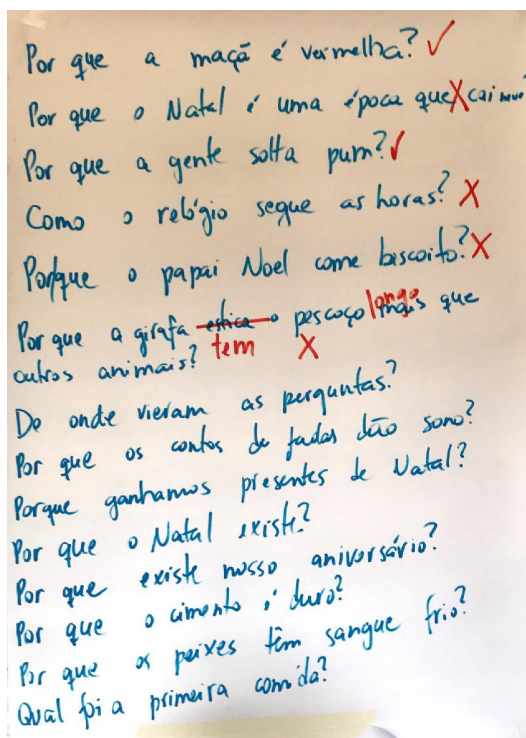 Por que a maçã é vermelha? ✓
Por que o Natal é uma época que X cai neve?
Por que a gente solta pum? ✓
Como o relógio segue as horas? X
Porque o papai Noel come biscoito? X
Por que a girafa estica o pescoço longo mais que
tem X
outros animais?
De onde vieram as perguntas?
Por que os contos de fadas dão sono?
Porque ganhamos presentes de Natal?
Por que o Natal existe?
Por que existe nosso aniversário?
Por que o cimento é duro?
Por que os peixes têm sangue frio?
Qual foi a primeira comida?